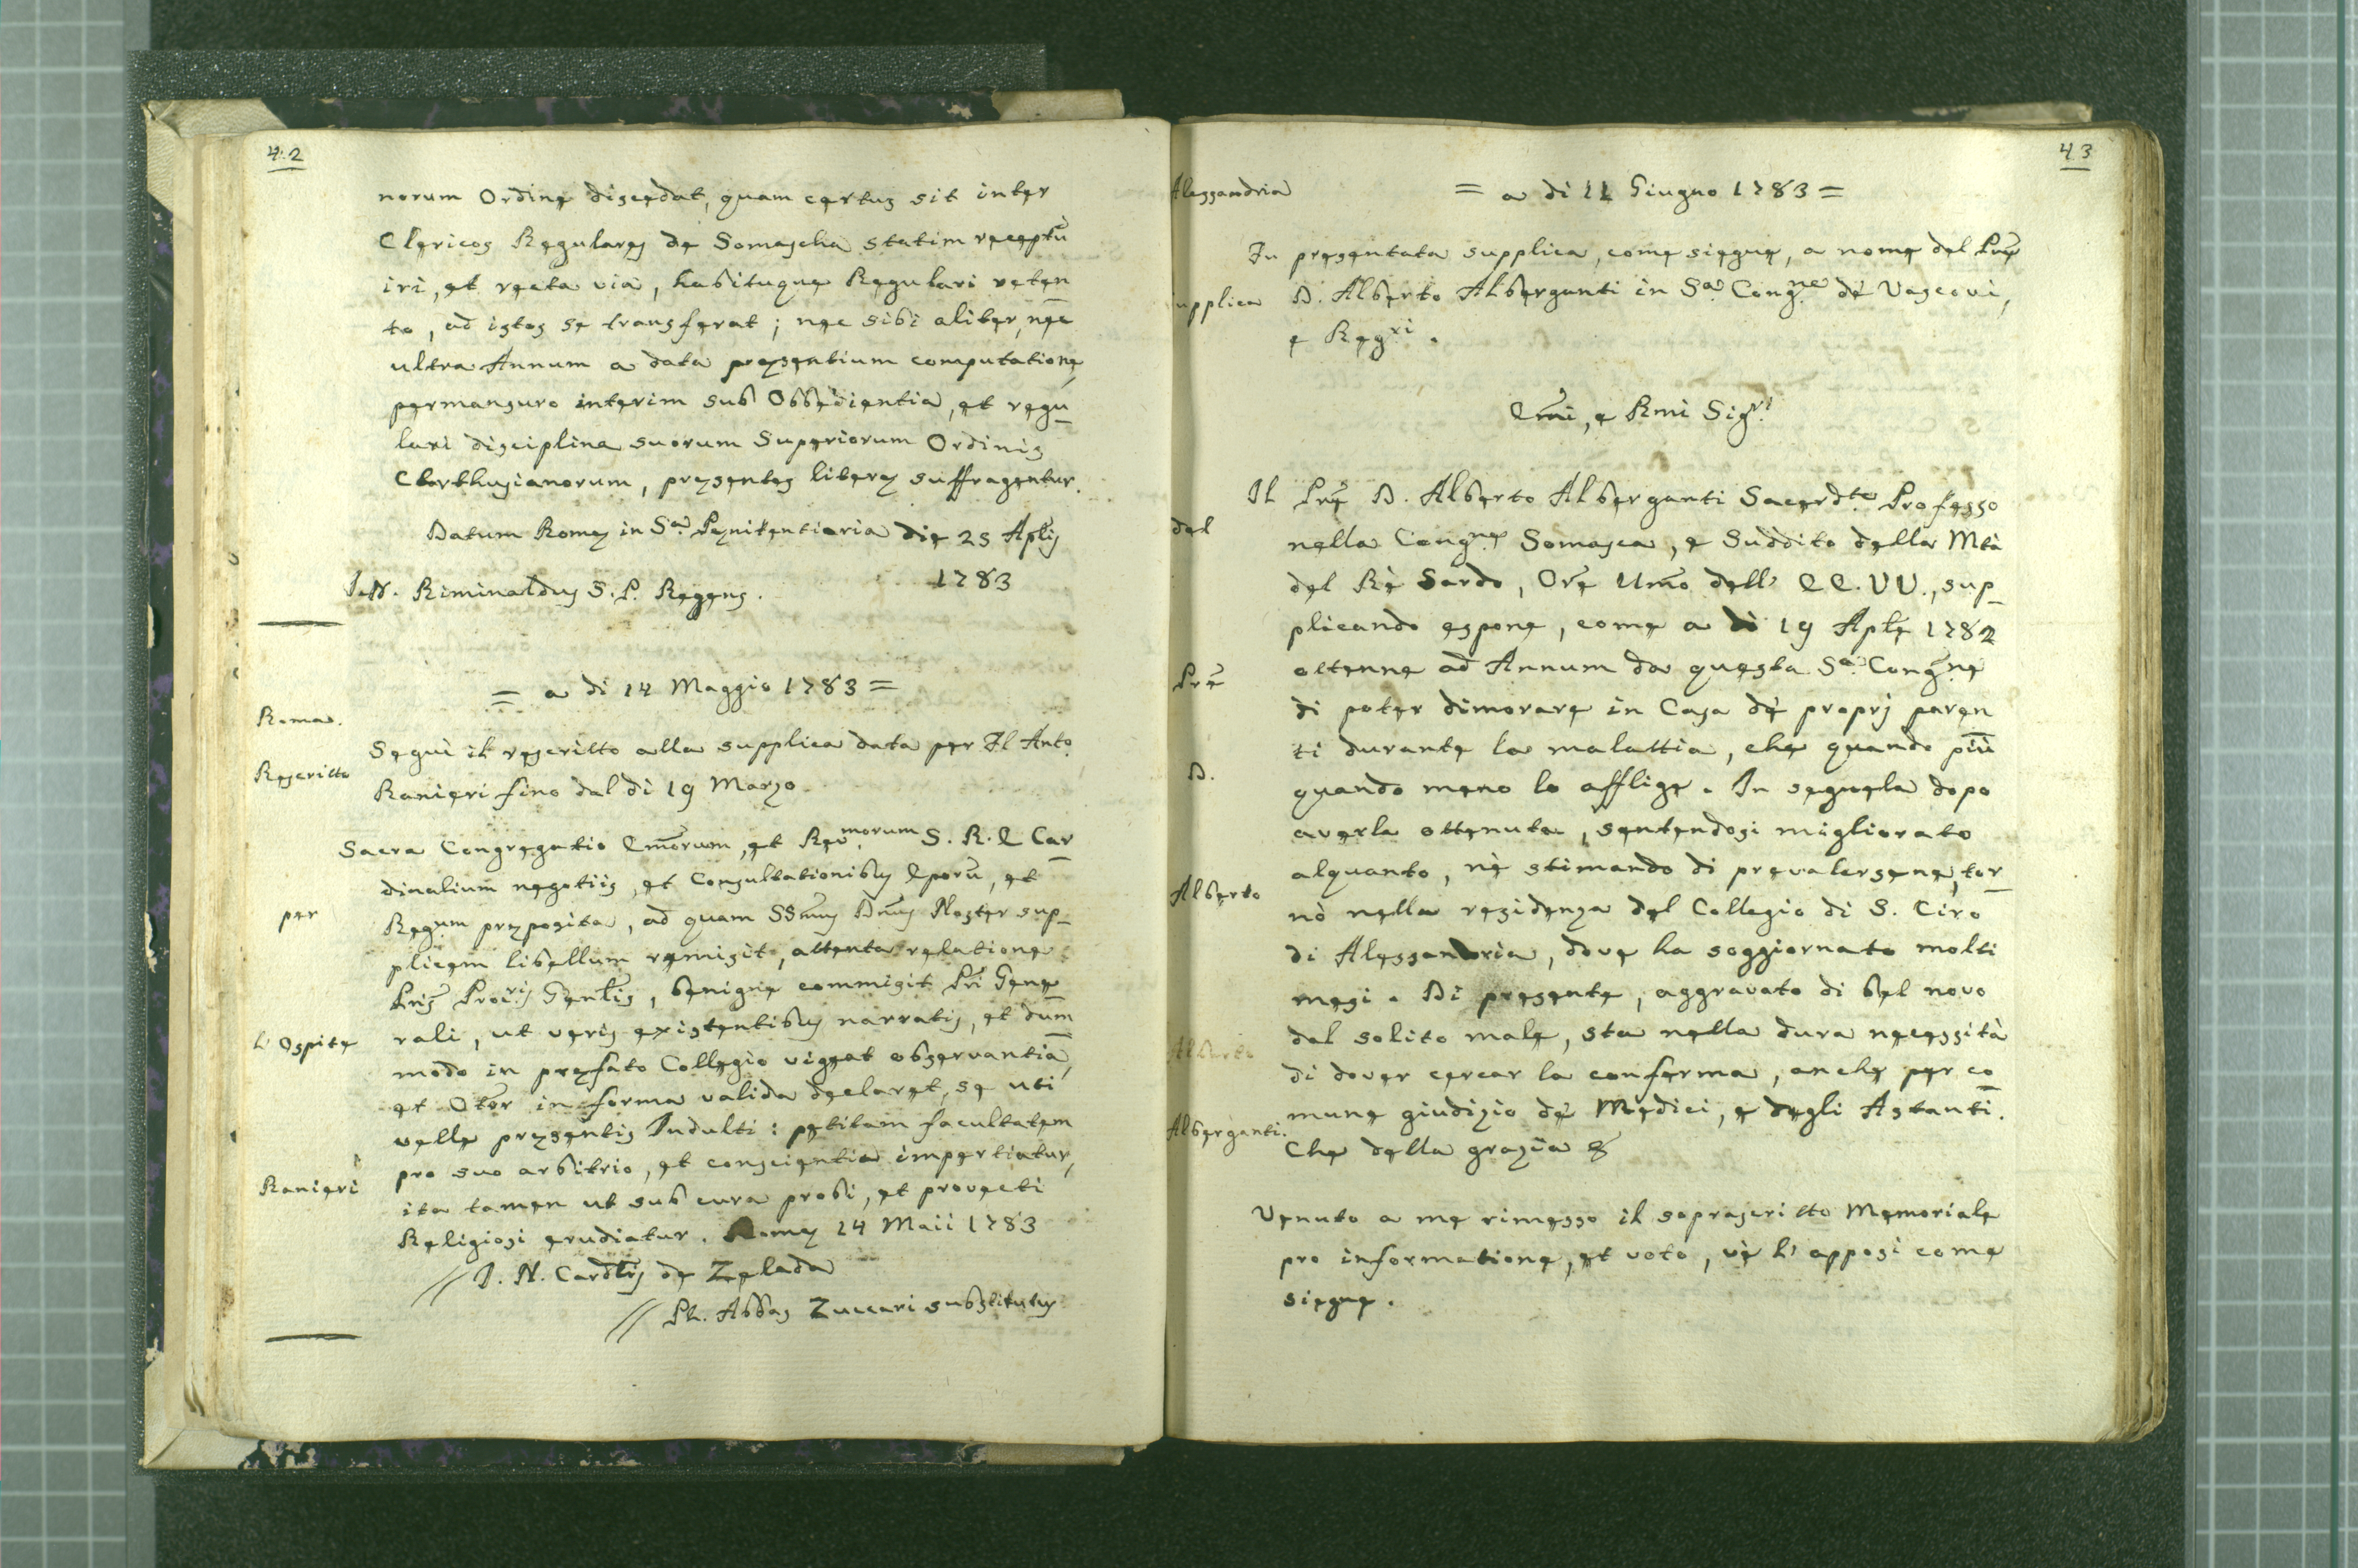 42
norum Ordine discedat, quam certus sit inter
Clericos Regulares de Somascha statim receptũ
iri, et recta via, habituque Regulari reten
to, ad istos se transferat; nec sibi aliter, nec
ultra Annum a data pręsentium computatione,
permansuro interim sub Obbedientia, et regu
lari disciplina suorum Superiorum Ordinis
Charthusianorum, pręsentes literę suffragentur.
Datum Romę in Sa. Pęnitentiaria die 25 Aplis
1783
Riminaldus S. P. Regens.
= a di 14 Maggio 1783 =
Roma.
Seguì il rescritto alla supplica data per Il Anto.
Rescritto
Ranieri fino dal dì 19 Marzo
Sacra Congregatio Emõrum, et Revmorum S. R. E Car
dinalium negotiis, et Consultationibus Eporũ, et
per
Regum pręposita, ad quam SSmus Dnus Noster sup_
plicem libellum remisit, attenta relatione
Pris Procris Genlis, benigne commisit Pri Gene
rali, ut veris existentibus narratis, et dum
l' Ospite
modo in pręfato Collegio vigeat observantia,
et Otõr in forma valida declaret, se uti
velle pręsentis Indulti: petitam facultatem
pro suo arbitrio, et conscientia impertiatur,
Ranieri
ita tamen ut sub cura probi, et provecti
Religiosi erudiatur. Romę 14 Maii 1783
// Cardlis de Zelada
// Ph. Abbas Zuccari substitutus
43
Alessandria
= a di 11 Giugno 1783 =
Fu presentata supplica, come siegue, a nome del Prẽ
upplica
D. Alberto Alberganti in Sa. Congne de' Vescovi,
e Regri.
Emi, e Rmi Sigri
Il Prẽ D. Alberto Alberganti Sacerdte Professo
del
nella Congne Somasca, e Suddito della Mtà
del Rè Sardo, Orẽ Umo dell' EE. VV., sup_
plicando espone, come a dì 19 Aplẽ 1782
ottenne ad Annum da questa Sa. Congne
Prẽ
di poter dimorare in Casa dé proprj paren
ti durante la malattia, che quando più
D.
quando meno lo afflige. In seguela dopo
averla ottenuta, sentendosi migliorato
alquanto, nè stimando di prevalersene, tor_
Alberto
nò nella residenza del Collegio di S. Ciro
di Alessandria, dove ha soggiornato molti
mesi. Di presente, aggravato di bel novo
dal solito male, sta nella dura necessità
Alberto
di dover cercar la conferma, anche per co
mune giudizio dé Medici, e degli Astanti.
Alberganti.
Che della grazia &
Venuto a me rimesso il soprascritto Memoriale
pro informatione, et voto, vè l' apposi come
siegue.